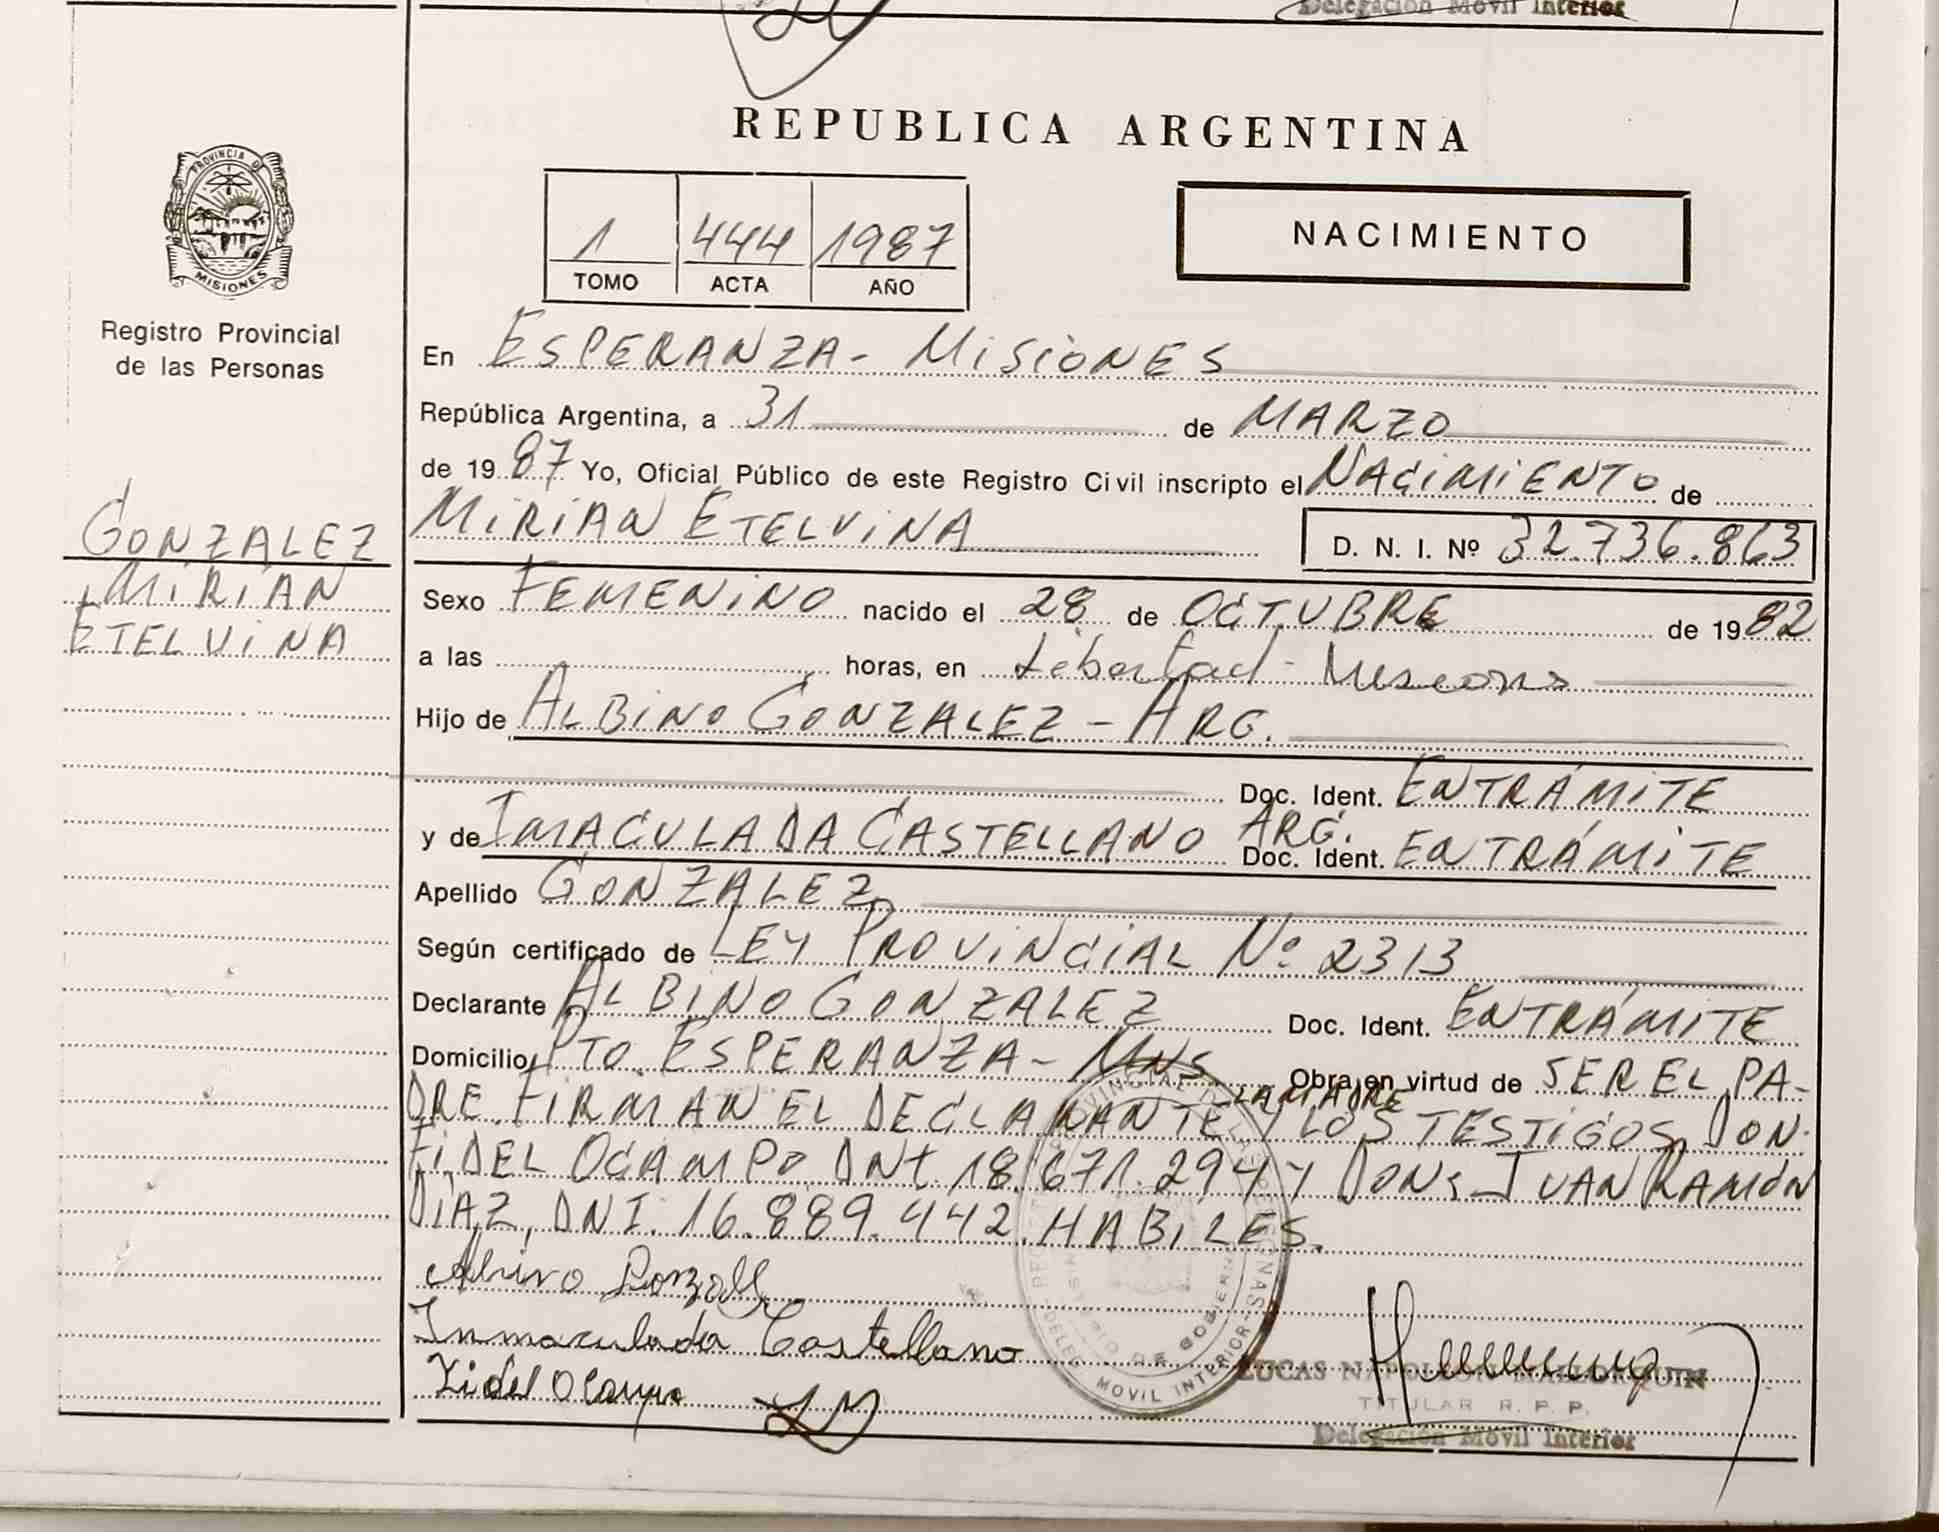 Delegación Móvil Interior
REPUBLICA ARGENTINA
PROVINCIA D
MISIONES
Registro Provincial
de las Personas
1 444 1987
TOMO ACTA AÑO
NACIMIENTO
En ESPERANZA - MISIONES
República Argentina, a 31 de MARZO
de 1987 Yo, Oficial Público de este Registro Civil inscripto el NACIMIENTO de
GONZALEZ
MIRIAN
ETELVINA
MIRIAN ETELVINA D. N. I. Nº 32.736.863
Sexo FEMENINO nacido el 28 de OCTUBRE de 1982
a las horas, en Libertad - Misiones
Hijo de ALBINO GONZALEZ - ARG.
Doc. Ident. EN TRÁMITE
y de IMACULADA CASTELLANO ARG. Doc. Ident. EN TRÁMITE
Apellido GONZALEZ
Según certificado de LEY PROVINCIAL Nº 2313
Declarante ALBINO GONZALEZ Doc. Ident. EN TRÁMITE
Domicilio PTO. ESPERANZA - MNS Obra en virtud de SER EL PA-
DRE. FIRMAN EL DECLARANTE LA MADRE Y LOS TESTIGOS DON:
FIDEL OCAMPO DNI. 18.671.294 Y DON: JUAN RAMÓN
DIAZ, DNI. 16.889.442. HABILES.
Inmaculada Castellano
Fidel Ocampo
MOVIL INTERIOR
LUCAS NAPOLEON MALLORQUIN
TITULAR R. P. P.
Delegación Móvil Interior